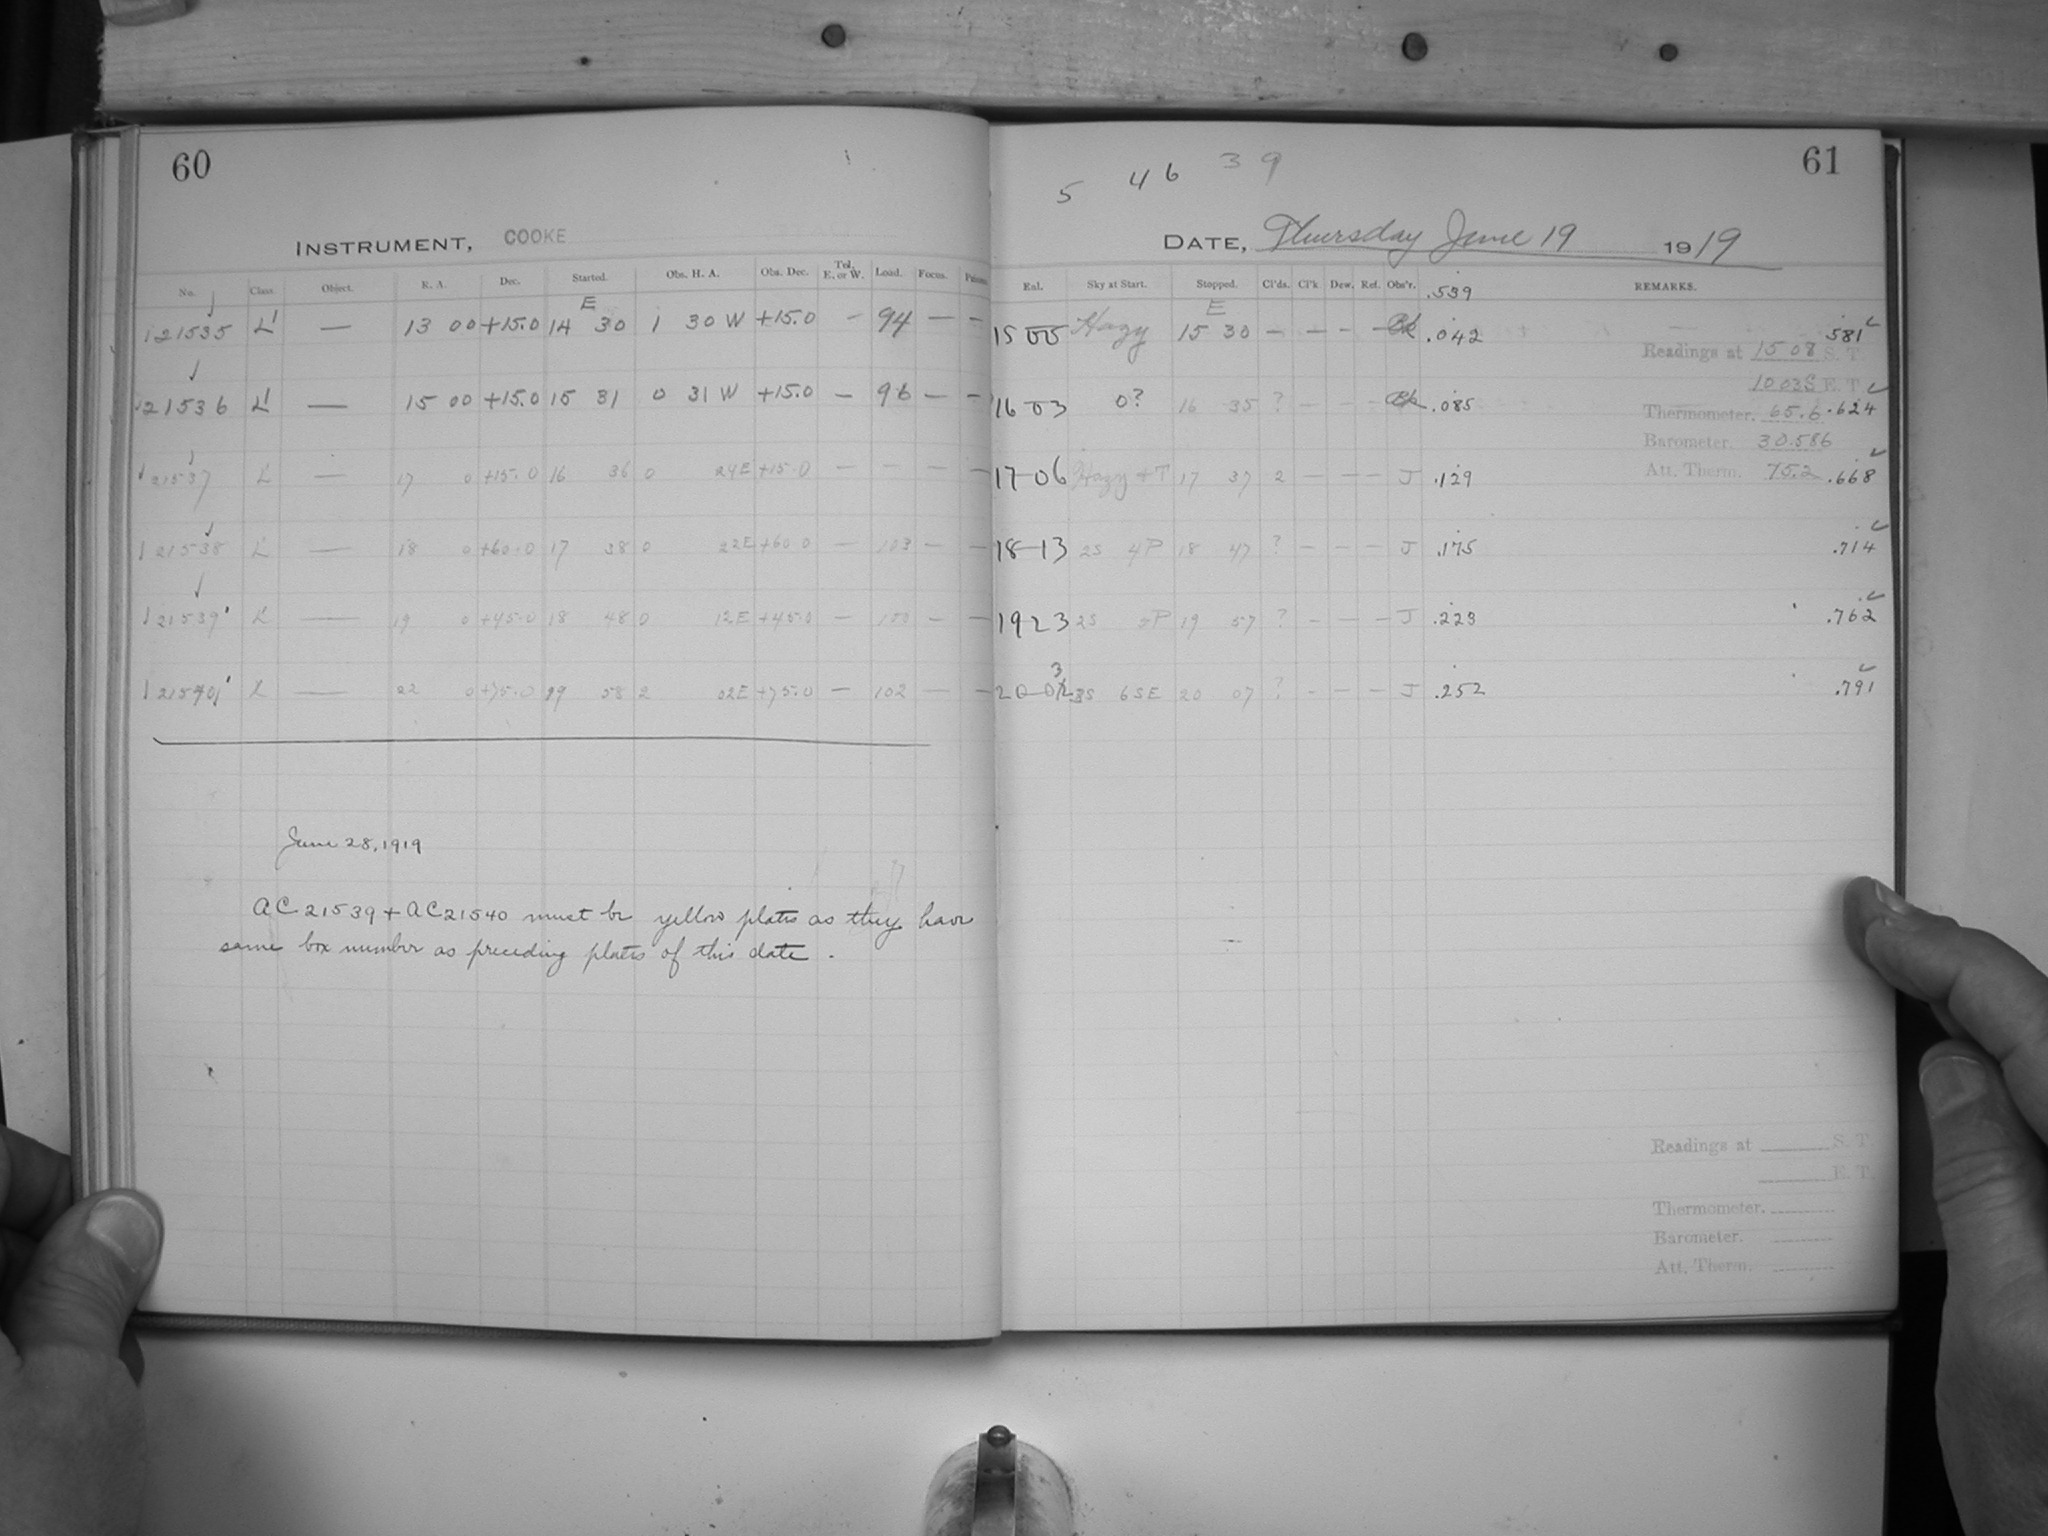 60
INSTRUMENT, COOKE
No. Class. Object. R. A. Dec. Started. Obs. H. A. Obs. Dec. Tel. E. or W. Load. Focus.
E
21535 L — 13 00 +15.0 14 30 1 30 W +15.0 — 94 — —
21536 L — 15 00 +15.0 15 31 0 31 W +15.0 — 96 — —
21537 L — 17 0 +15.0 16 36 0 24E +15.0 — — — —
21538 L — 18 0 +60.0 17 38 0 22E +60 0 — 103 — —
21539 L — 19 0 +45.0 18 48 0 12E +45.0 — — —
L — 22 0 +75.0 58 2 02E +75.0 — 102 — —
June 28, 1919
AC 21539 + AC 21540 must be yellow plates as they have
same box number as preceding plates of this date.
61
5 46 39
DATE, Thursday June 19 1919
Exl. Sky at Start. Stopped. Cl'ds. Cl'k. Dew. Ref. Obs'r. .539 REMARKS.
E
Hazy 15 30 — — — — .042 .581
Readings at 15 08 S. T.
E. T.
16 03 0? 16 35 ? — — — .085 .624
Thermometer. 65.6
Barometer. 30.586
17 06 Hazy + T 17 37 2 — — — J .129 .668
Att. Therm. 75.2
18 13 2S 4P 18 47 ? — — — J .175 .714
19 23 2S 19 57 ? — — — J .223 .762
20 6SE 20 07 ? — — — J .252 .791
Readings at S. T.
E. T.
Thermometer.
Barometer.
Att. Therm.